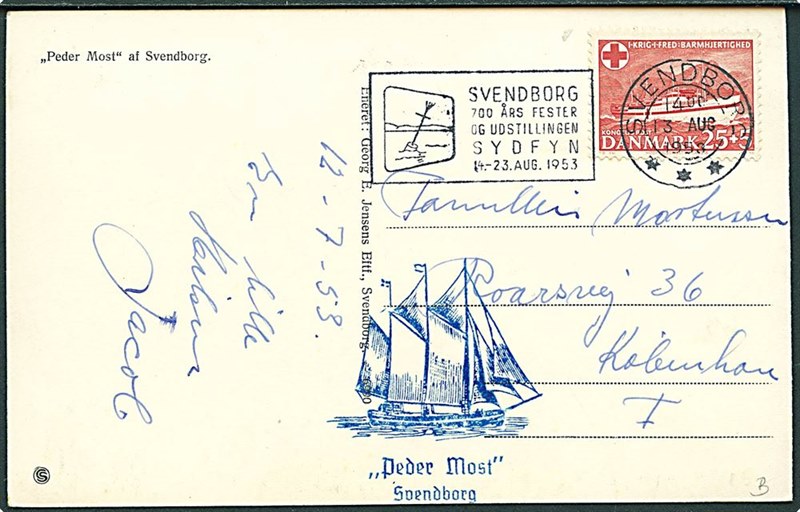 „Peder Most“ af Svendborg.
Eneret: Georg E. Jensens Eftf., Svendborg.
12-7-53.
En lille
Hilsen
Jacob
SVENDBORG
700 ÅRS FESTER
OG UDSTILLINGEN
SYDFYN
14.-23. AUG. 1953
I·KRIG·I·FRED:BARMHJERTIGHED
DANMARK 25+5
SVENDBORG
13 AUG
1953
Familien Mortensen
Roarsvej 36
København
F
„Peder Most"
Svendborg
S
B